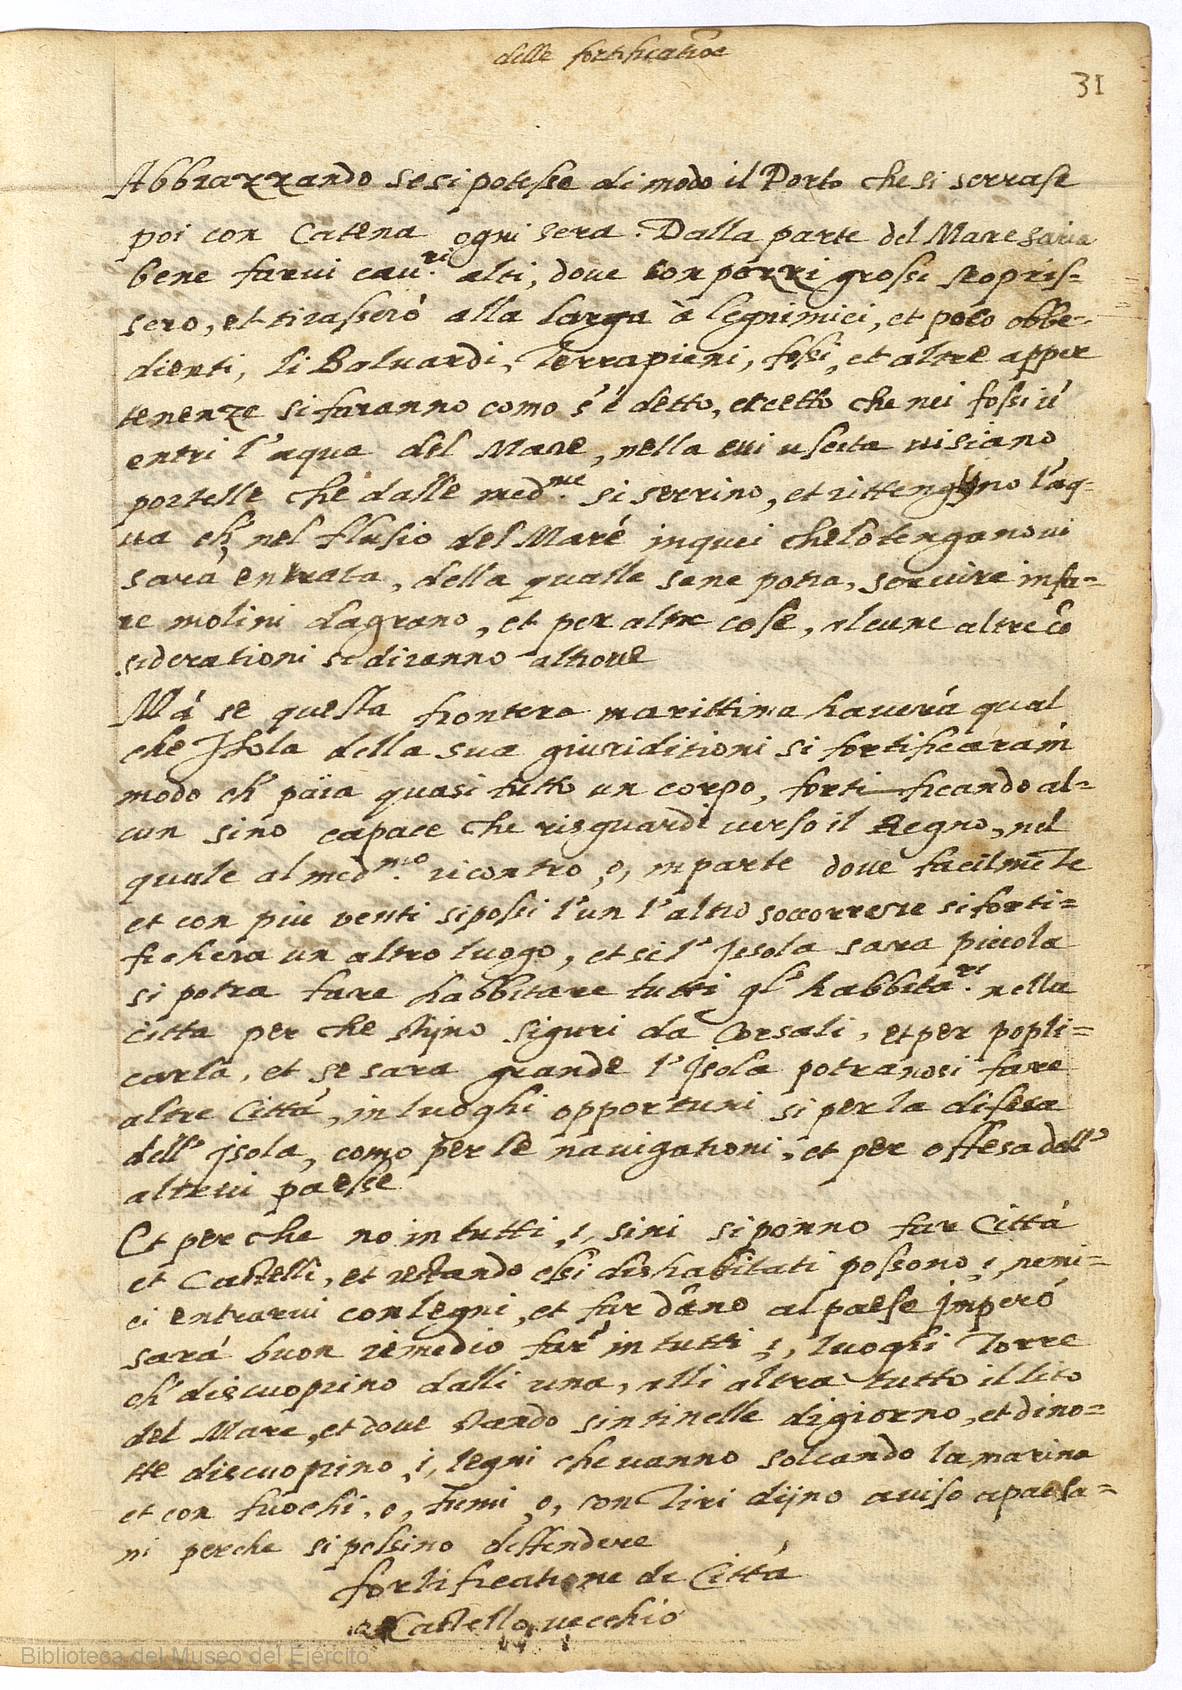 delle fortificatiõe
31
Abbrazzando se si potesse di modo il Porto che si serrase
poi con Catena ogni sera. Dalla parte del Mare saria
bene farui cau.ri alti, doue con pezzi grossi scopris-
sero, et tirasserò alla larga à legni mici, et poco obbe-
dienti, li Baluardi, Terrapieni, fossi, et altre apper
tenenze si faranno como s'è detto, eccetto che nei fossi u'
entri l'aqua del Mare, nella cui uscita ui siano
portelle che dalle med.me si serrino, et rittengano l'aq-
ua ch' nel flusio del Maré in quei che lo tengano ui
sarà entrata, della qualle se ne potra, seruire in fa-
re molini da grano, et per altre cose, alcune altre cõ
siderationi si diranno altroue
Má se questa frontera marittima hauerá qual
che Isola della sua giuriditioni si fortificara in
modo ch' paia quasi tutto un corpo, fortificando al-
cun sino capace che risguardi uerso il Regno, nel
quale al med.mo ricontro, o, in parte doue facilmẽte
et con piu venti si possi l'un l'altro soccorrere si forti-
fichera un altro luogo, et se l' Isola sara piccola
si potra fare habbitare tutti gl' habbita.ri nella
citta per che stijno siguri da Corsali, et per popli-
carla, et se sara grande l' Isola potranosi fare
altre Cittá, in luoghi opportuni si per la difesa
dell' Isola, como per le nauigationi, et per offesa dell'
altrui paesse
Et per che nõ in tutti, i, sini si ponno far Cittá
et Castelli, et restando essi dishabitati possono, i, nemi-
ci entrarui con legni, et far dãno al paese Imperó
sará buon remedio far' in tutti, i, luoghi Torre
ch' discuoprino dalli una, alli altra tutto il lito
del Mare, et doue stando sintinelle di giorno, et di no-
tte discuoprino, i, legni che uanno solcando la marina
et con fuochi, o, fumi, o, con Tiri dijno auiso a paesa-
ni perche si possino deffendere
fortificatione de Cittá
a Castello uecchio
Biblioteca del Museo del Ejército